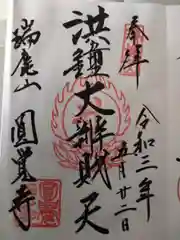 奉拝
令和三年
五月廿二日
洪鐘大辨財天
瑞鹿山
圓覚寺